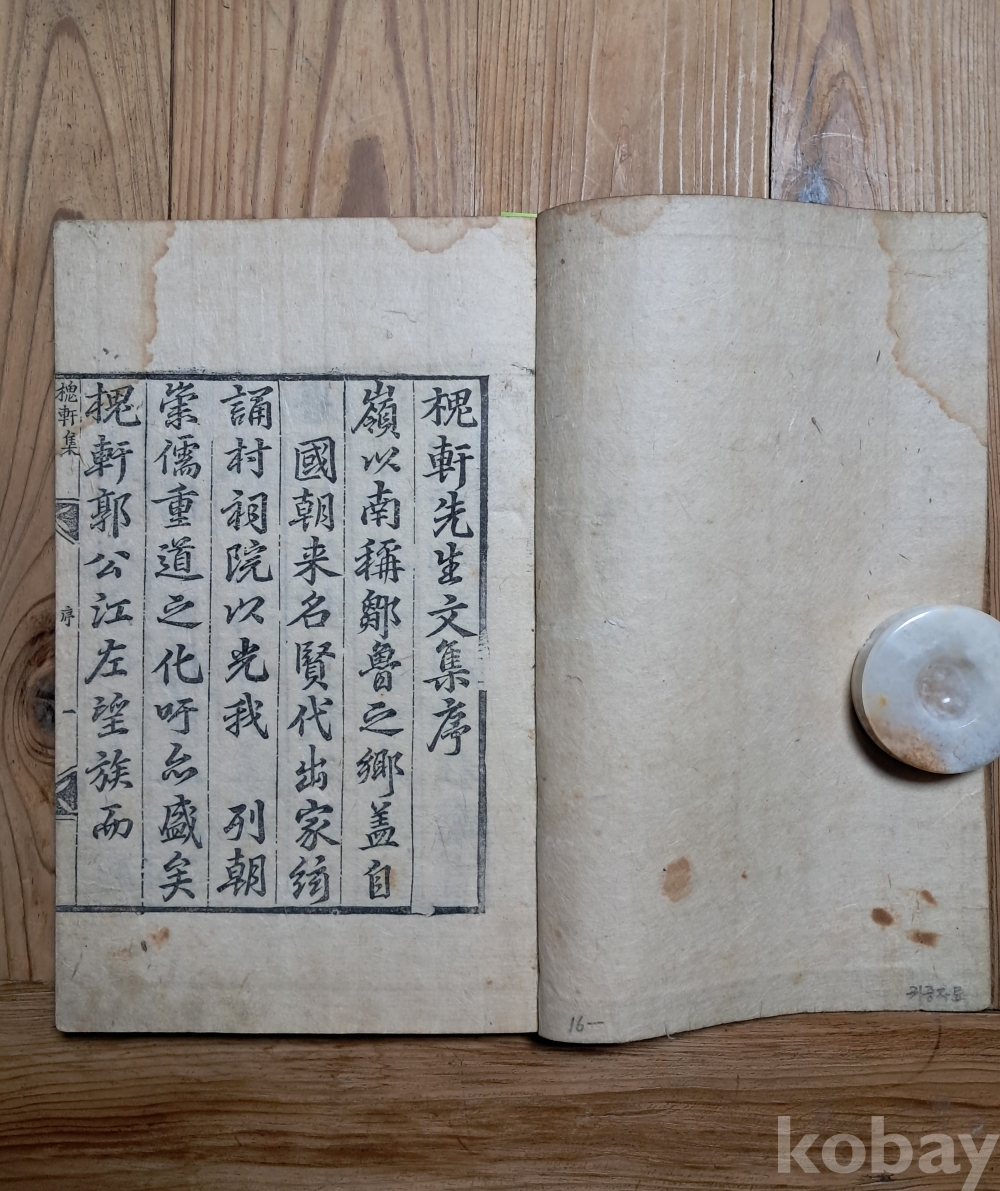 槐軒先生文集序
嶺以南稱鄒魯之鄉盖自
國朝来名賢代出家絃
誦村祠院以光我 列朝
崇儒重道之化吁亦盛矣
槐軒郭公江左望族而
槐軒集
序
一
16一
귀중자료
kobay